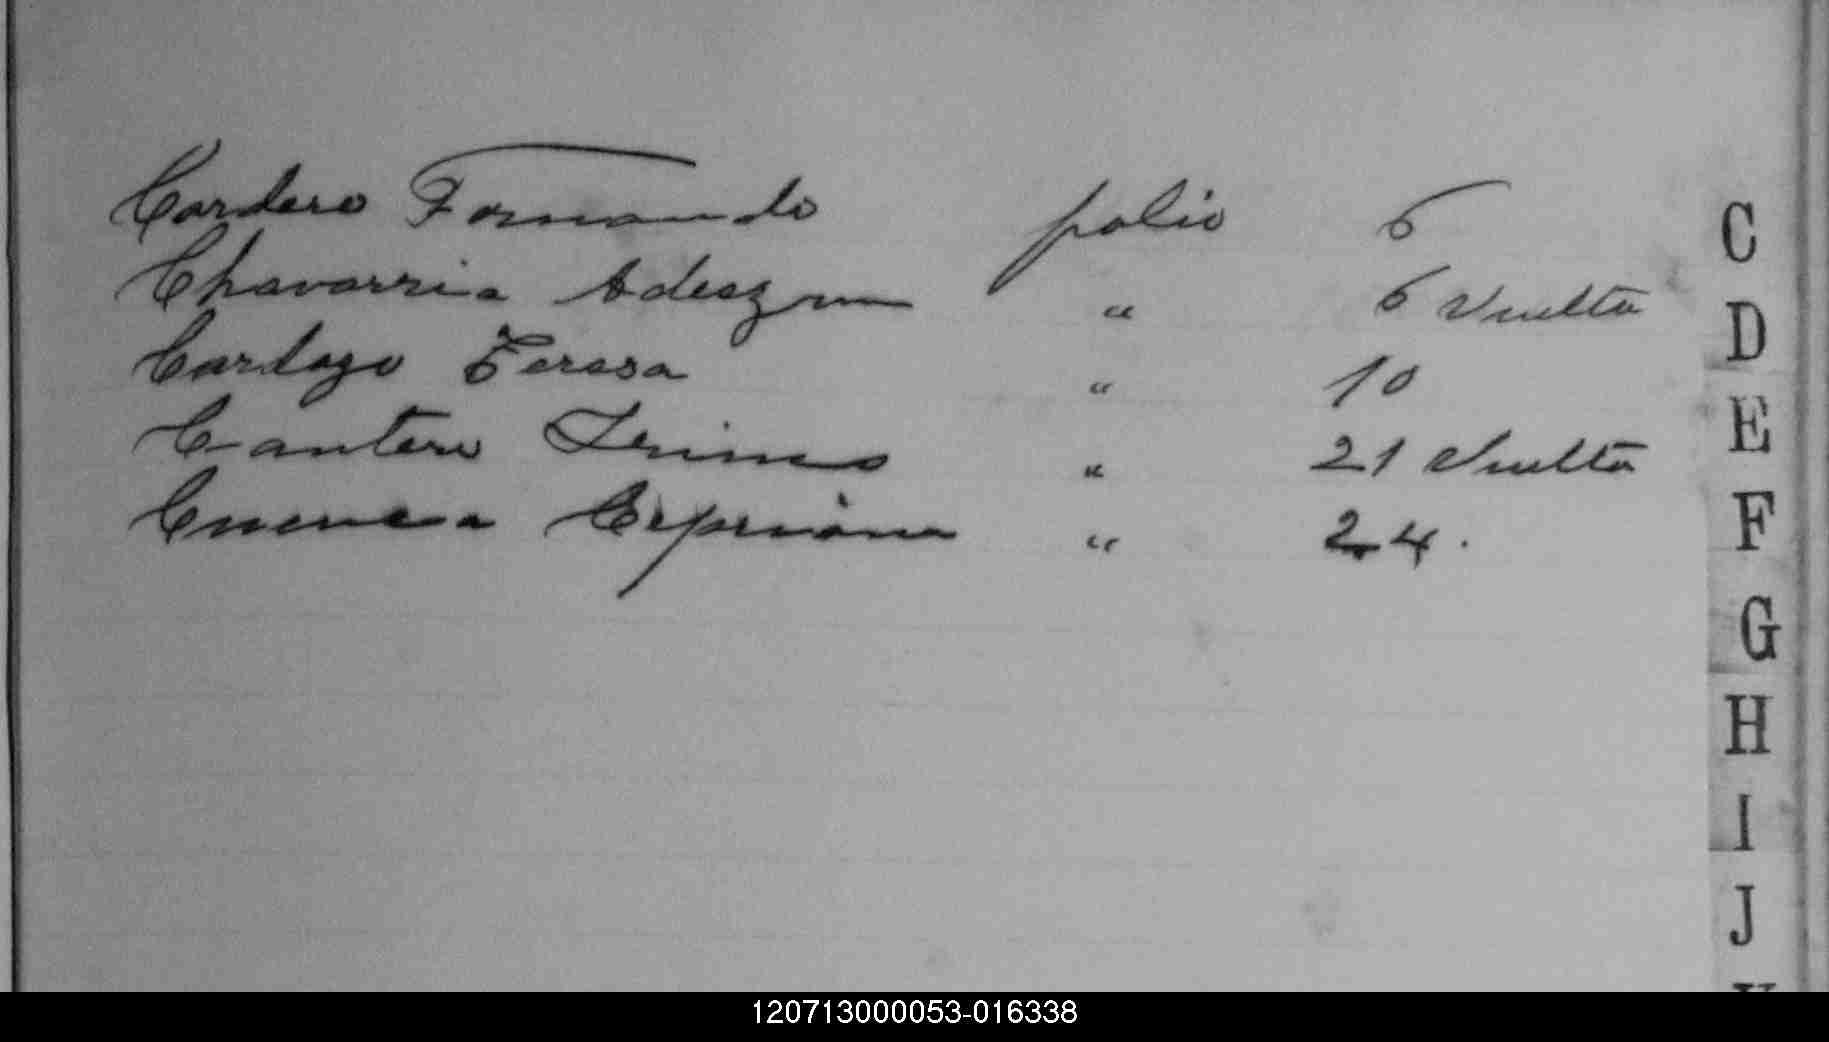 Cordero Fernando folio 6
Chavarria " 6 Vuelta
Cartago Teresa " 10
Cantero " 21 Vuelta
Cuenca Cipriana " 24.
C
D
E
F
G
H
I
J
120713000053-016338